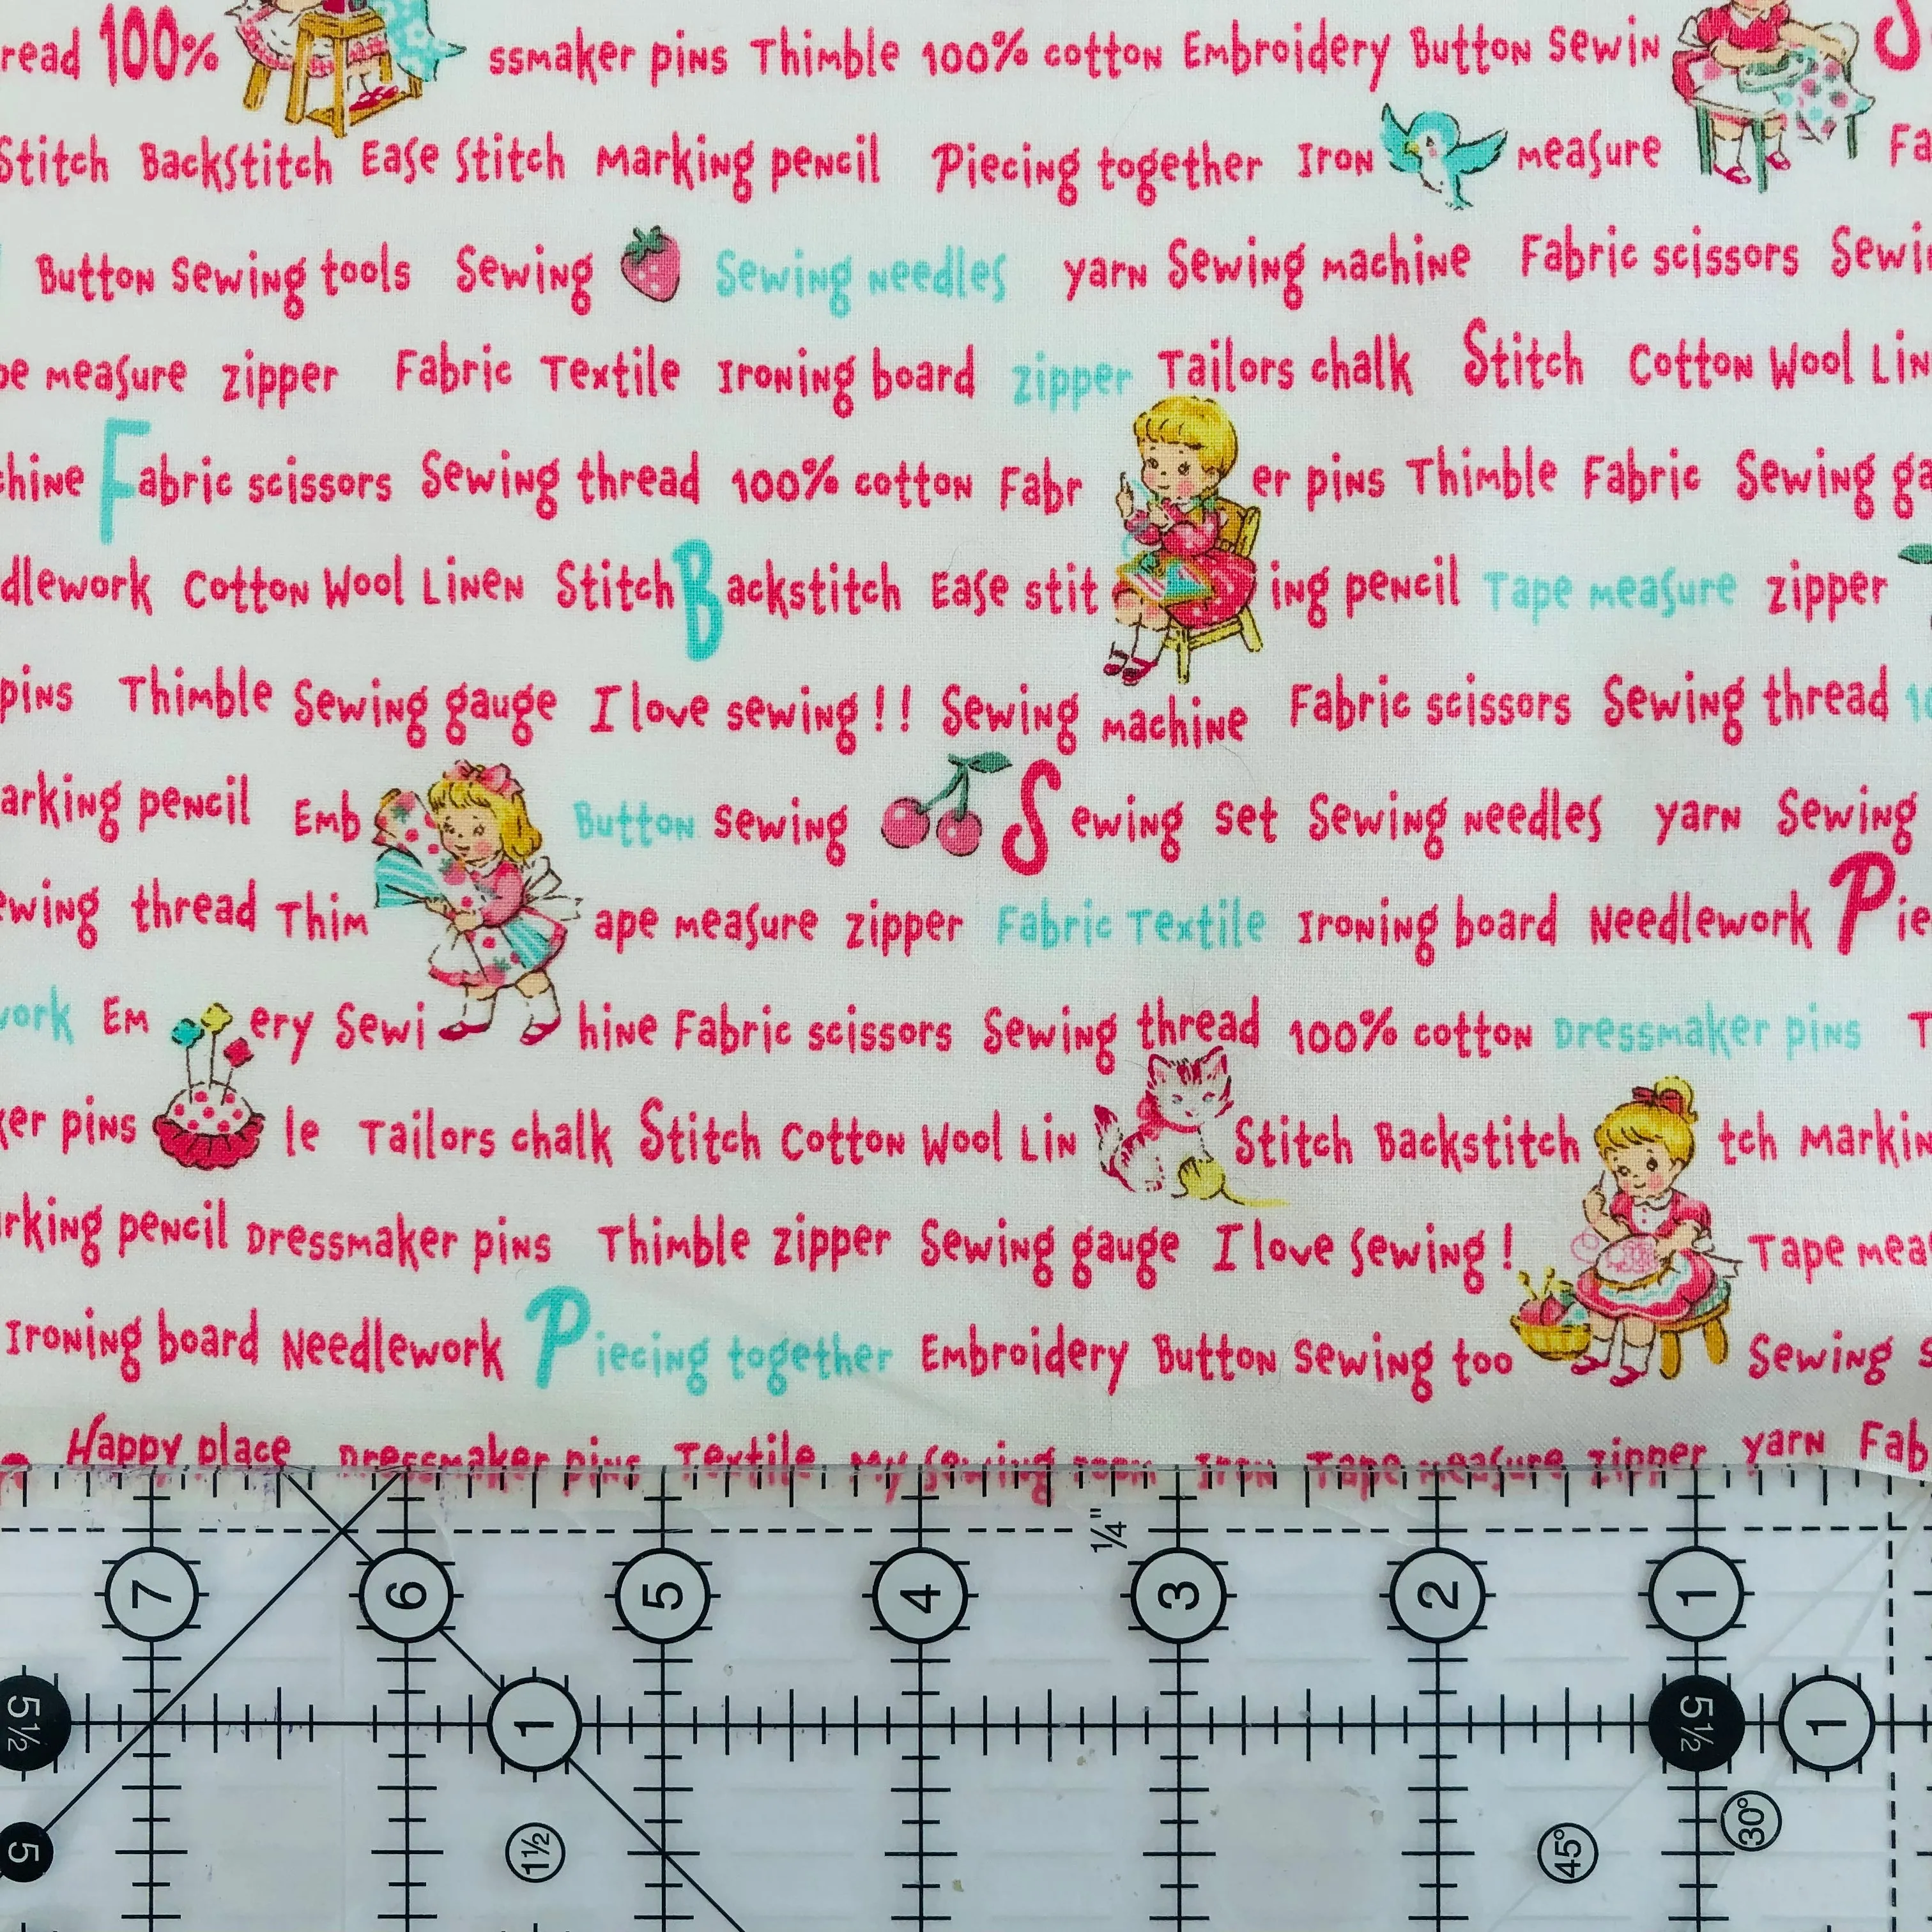 read 100% ssmaker pins Thimble 100% cotton Embroidery Button sewin S
Stitch Backstitch Ease Stitch Marking pencil Piecing together Iron measure Fa
Button Sewing tools Sewing Sewing needles yarn Sewing machine Fabric scissors Sewi
pe measure zipper Fabric Textile Ironing board zipper Tailors chalk Stitch Cotton Wool Lin
chine Fabric scissors Sewing thread 100% cotton Fabr er pins Thimble Fabric Sewing ga
dlework Cotton Wool Linen Stitch Backstitch Ease stit ing pencil Tape measure zipper
pins Thimble Sewing gauge I love sewing!! Sewing machine Fabric scissors Sewing thread 10
arking pencil Emb Button sewing Sewing set Sewing needles yarn Sewing
ewing thread Thim ape measure zipper Fabric Textile Ironing board Needlework Pie
work Em ery Sewi hine Fabric scissors Sewing thread 100% cotton Dressmaker pins T
ker pins le Tailors chalk Stitch Cotton Wool Lin Stitch Backstitch tch Markin
rking pencil Dressmaker pins Thimble zipper Sewing gauge I love sewing! Tape mea
Ironing board Needlework Piecing together Embroidery Button sewing too Sewing s
Happy place Dressmaker pins Textile My sewing room Iron Tape measure zipper yarn Fab
1/4"
7 6 5 4 3 2 1
5½ 1 5½ 1
5 1½ 45° 30°